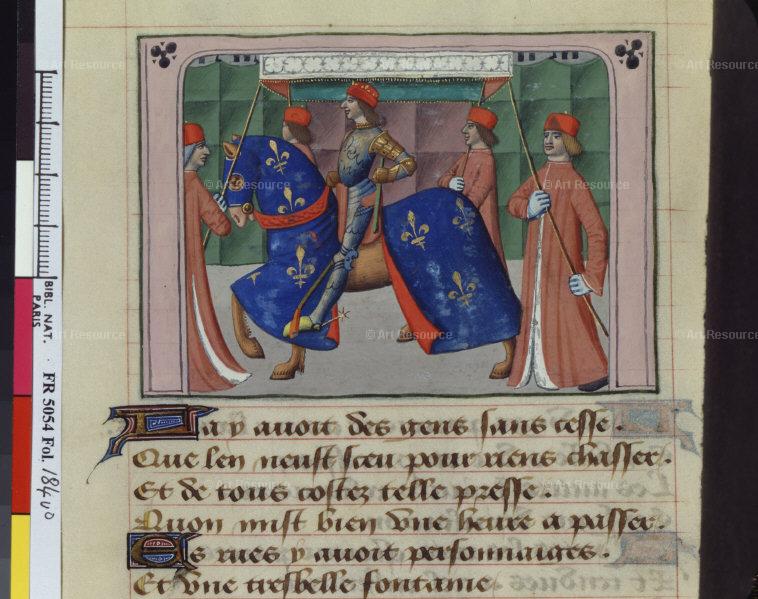 © Art Resource
© Art Resource
© Art Resource
© Art Resource
© Art Resource
© Art Resource
© Art Resource
© Art Resource
© Art Resource
BIBL. NAT.
PARIS
FR 5054 Fol. 184 vo
La y avoit des gens sans cesse.
Que len neust sceu pour riens chasser.
Et de tous costez telle presse.
Quon mist bien vne heure a passer.
Es rues y avoit personnaiges.
Et vne tresbelle fontaine